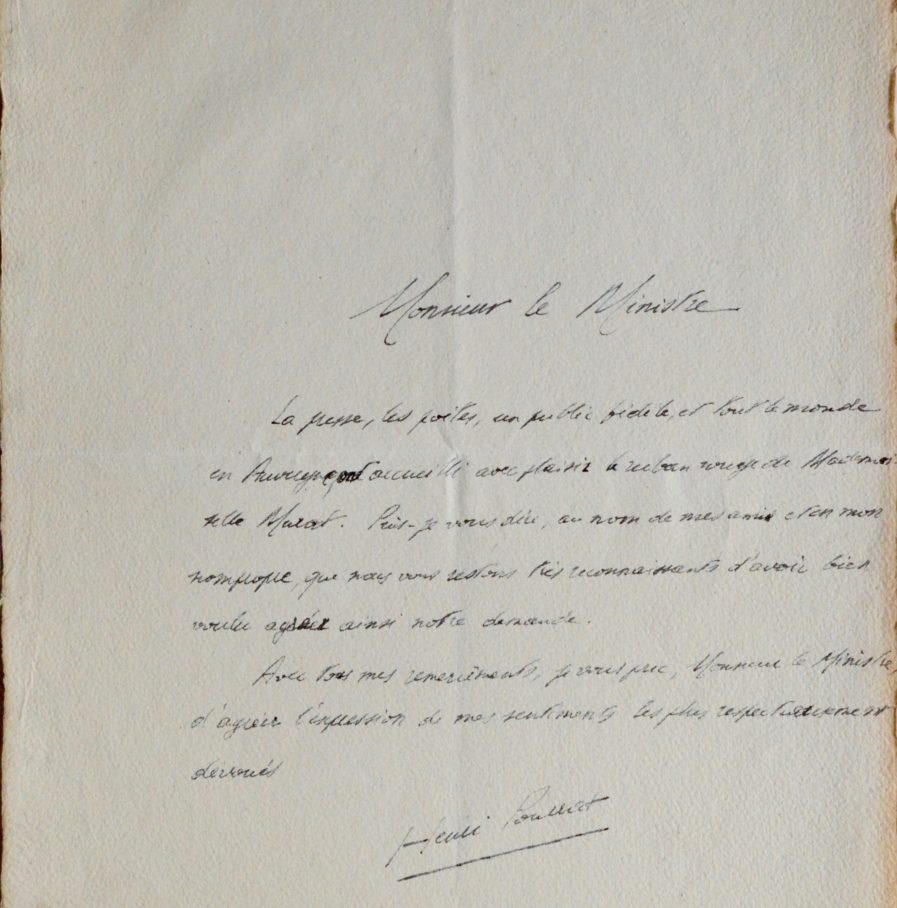 Monsieur le Ministre
La presse, les poètes, un public fidèle, et tout le monde
en Auvergne ont accueilli avec plaisir le ruban rouge de Mademoi
selle Murat. Puis-je vous dire, au nom de mes amis et en mon
nom propre, que nous vous restons très reconnaissants d'avoir bien
voulu agréer ainsi notre demande.
Avec tous mes remerciements, je vous prie, Monsieur le Ministre,
d'agréer l'expression de mes sentiments les plus respectueusement
dévoués
Henri Pourrat